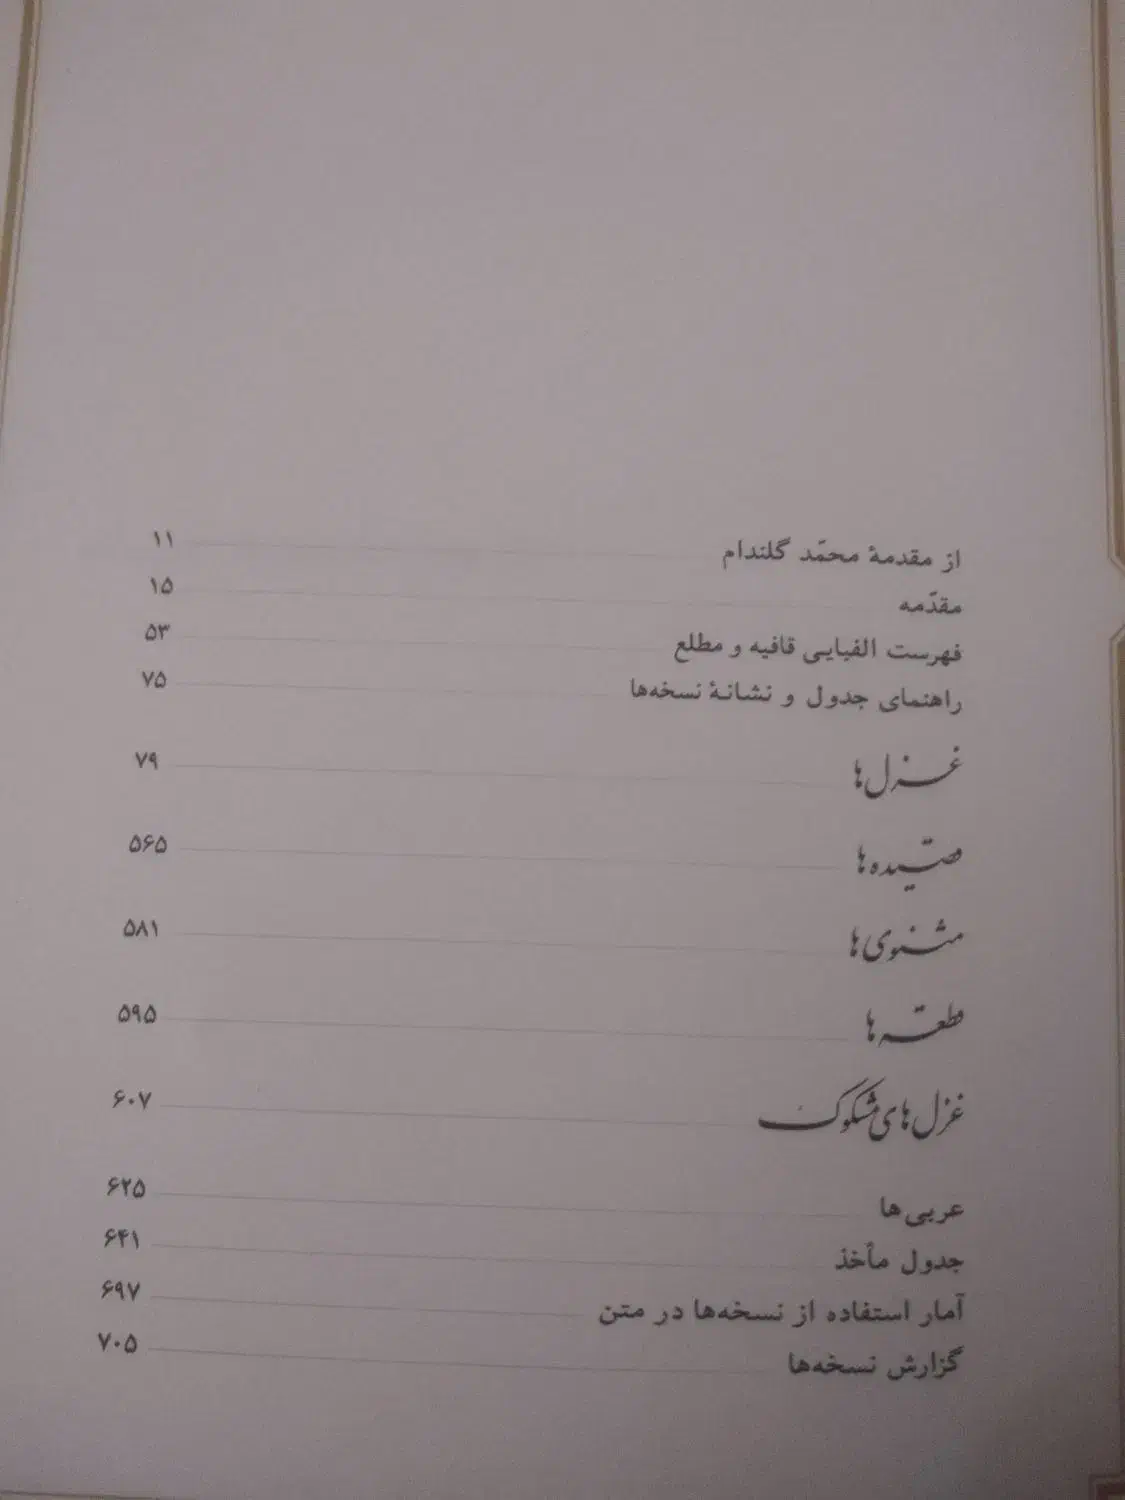 از مقدمهٔ محمّد گلندام ۱۱
مقدّمه ۱۵
فهرست الفبایی قافیه و مطلع ۵۳
راهنمای جدول و نشانهٔ نسخه‌ها ۷۵
غزل‌ها ۷۹
قصیده‌ها ۵۶۵
مثنوی‌ها ۵۸۱
قطعه‌ها ۵۹۵
غزل‌های مشکوک ۶۰۷
عربی‌ها ۶۲۵
جدول مأخذ ۶۴۱
آمار استفاده از نسخه‌ها در متن ۶۹۷
گزارش نسخه‌ها ۷۰۵